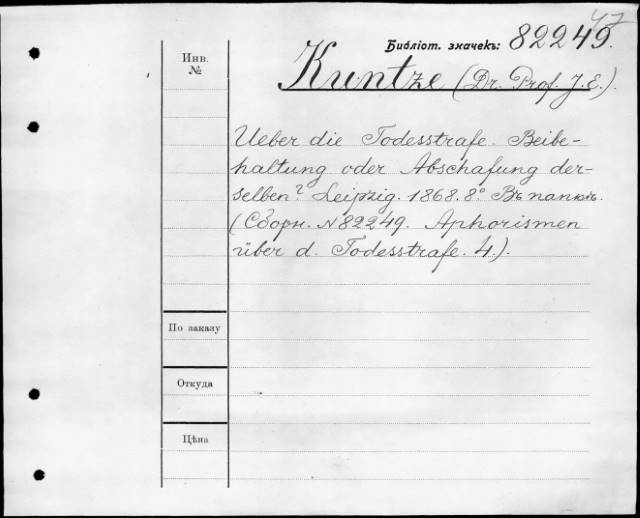 47
Библіот. значекъ: 82249.
Инв. №
Kuntze (Dr. Prof. J. E.).
Ueber die Todesstrafe. Beibe-
haltung oder Abschafung der-
selben? Leipzig. 1868. 8° Въ папкѣ.
(Сборн. № 82249. Aphorismen
über d. Todesstrafe. 4.).
По заказу
Откуда
Цѣна